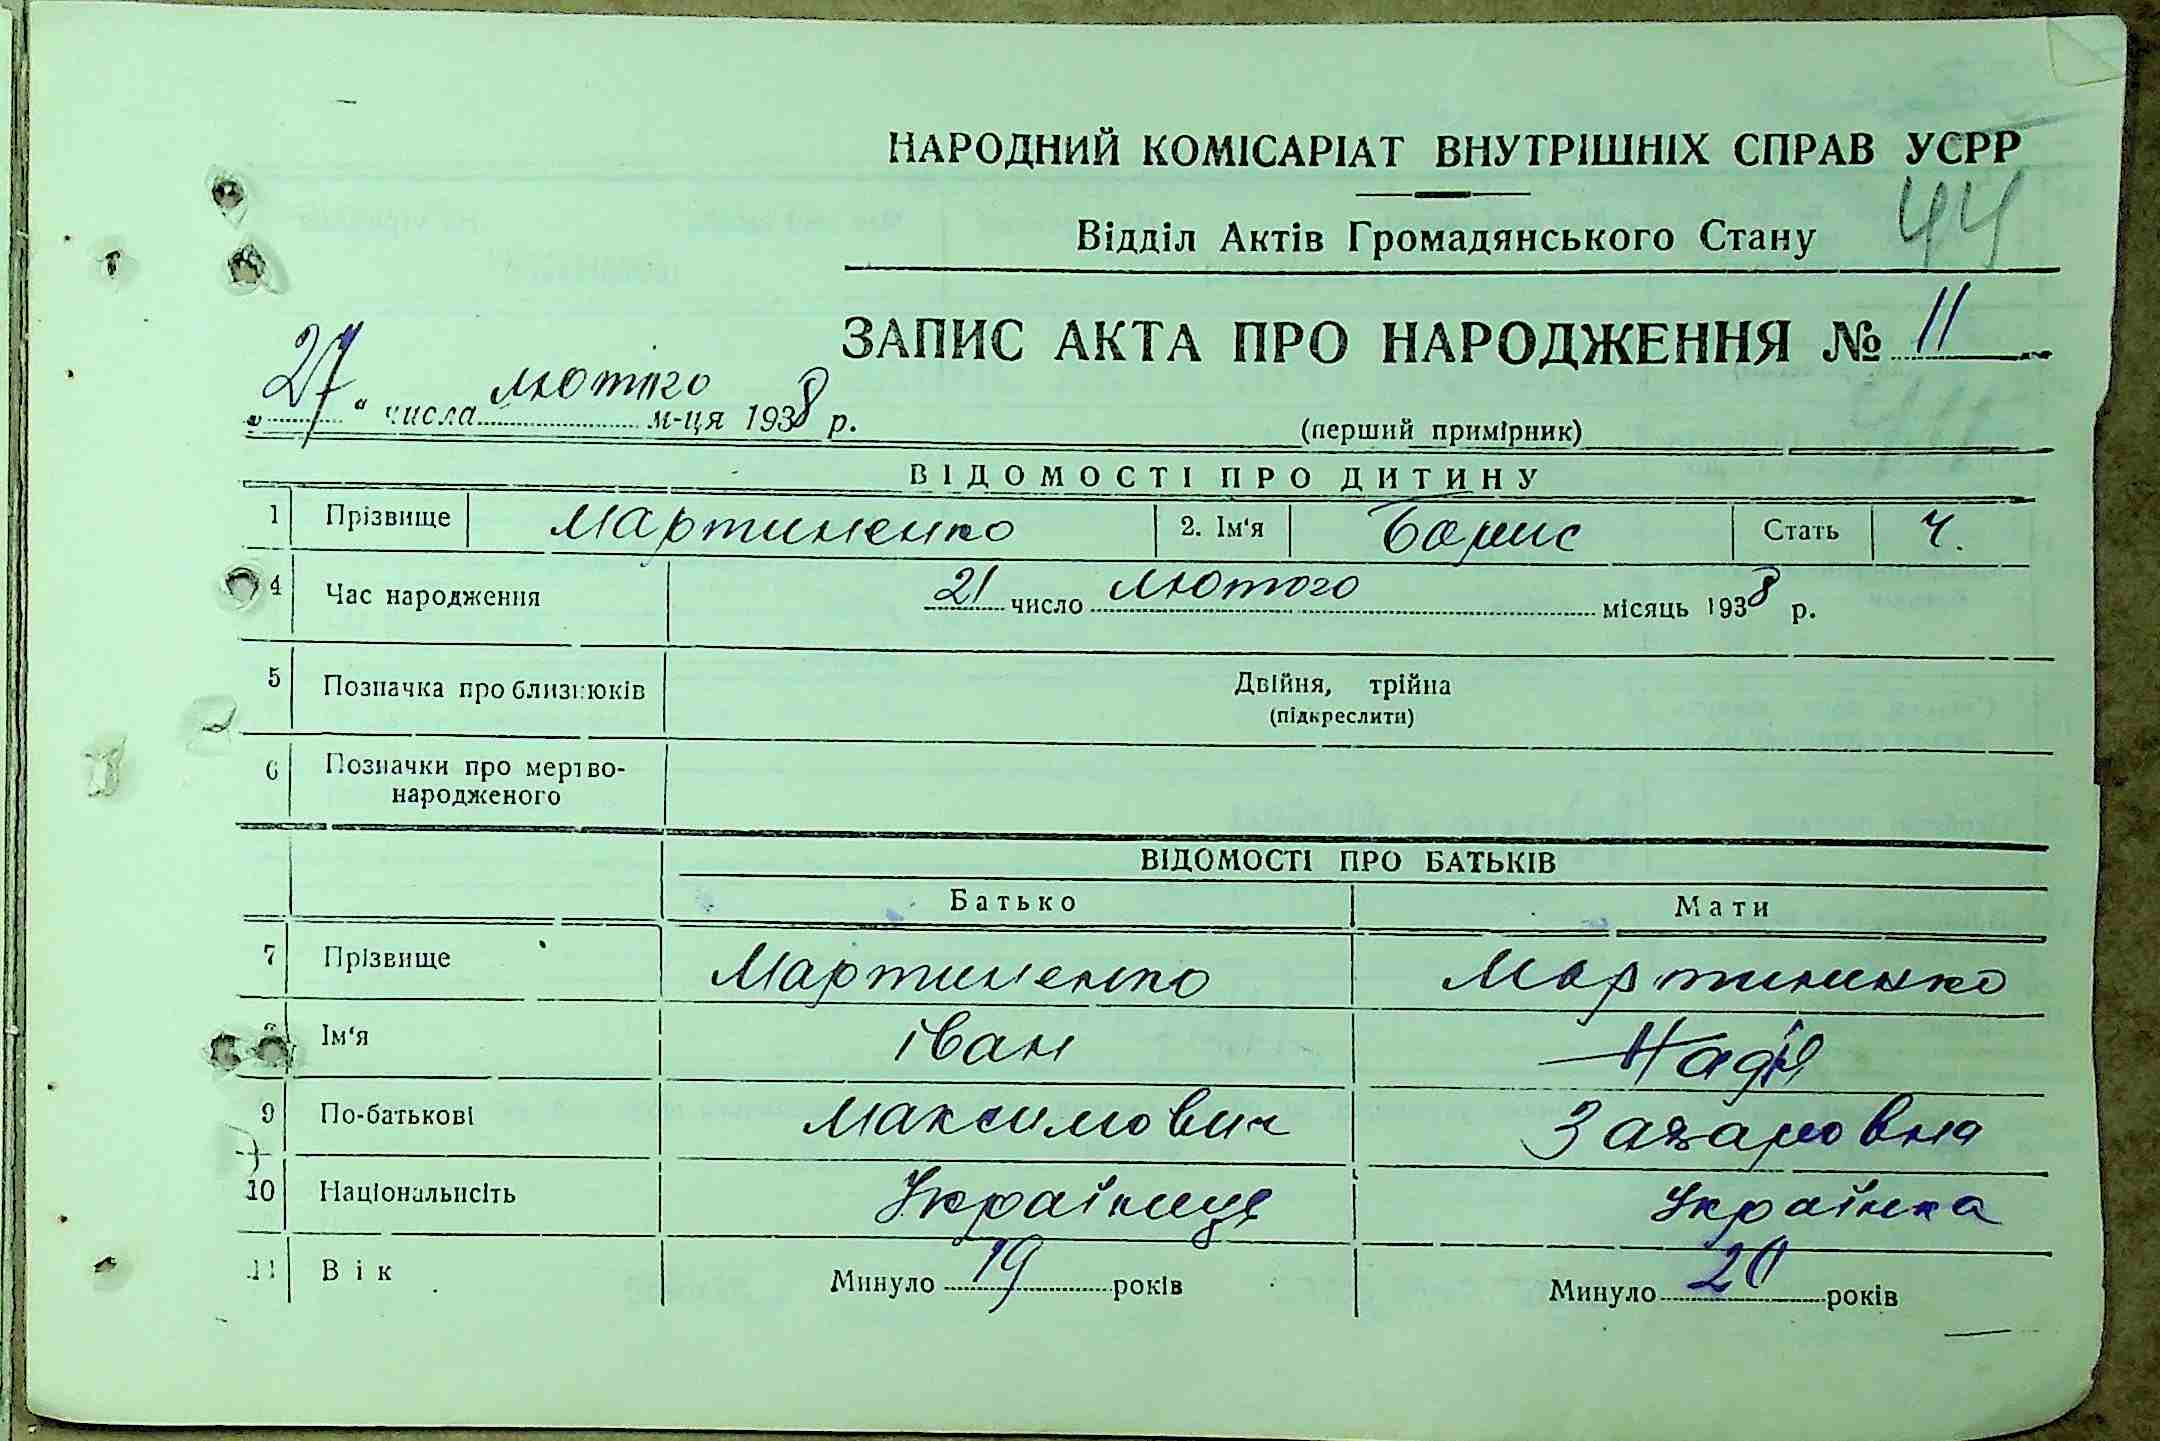 НАРОДНИЙ КОМІСАРІАТ ВНУТРІШНІХ СПРАВ УСРР
44
Відділ Актів Громадянського Стану
ЗАПИС АКТА ПРО НАРОДЖЕННЯ № 11
„27“ числа лютого м-ця 1938 р.
(перший примірник)
ВІДОМОСТІ ПРО ДИТИНУ
1 Прізвище Мартиненко 2. Ім'я Борис Стать ч.
4 Час народження 21 число лютого місяць 1938 р.
5 Позначка про близнюків Двійня, трійна
(підкреслити)
6 Позначки про мертво-
народженого
ВІДОМОСТІ ПРО БАТЬКІВ
Батько Мати
7 Прізвище Мартиненко Мартиненко
8 Ім'я іван Надія
9 По-батькові Максимович Захаровна
10 Національнсіть Українець Українка
11 Вік Минуло 19 років Минуло 20 років